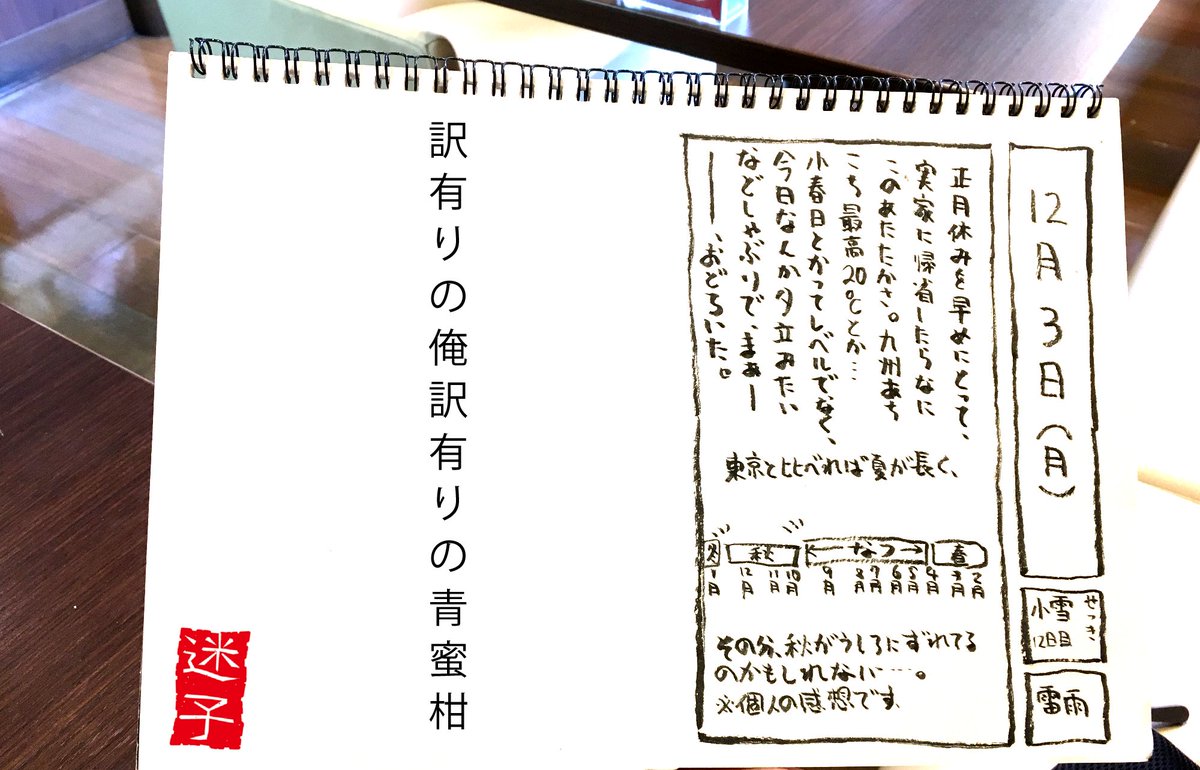 12月3日（月）
せっき
小雪
12日目
雷雨
正月休みを早めにとって、
実家に帰省したらなに
このあたたかさ。九州あち
こち最高20℃とか…
小春日とかってレベルでなく、
今日なんか夕立みたい
などしゃぶりで、まぁー
ーー、おどろいた。
東京と比べれば夏が長く、
冬 秋 ←なつ→ 春
1月 12月 11月 10月 9月 8月 7月 6月 5月 4月 3月 2月
その分、秋がうしろにずれてる
のかもしれない…。
※個人の感想です
訳有りの俺訳有りの青蜜柑
迷子